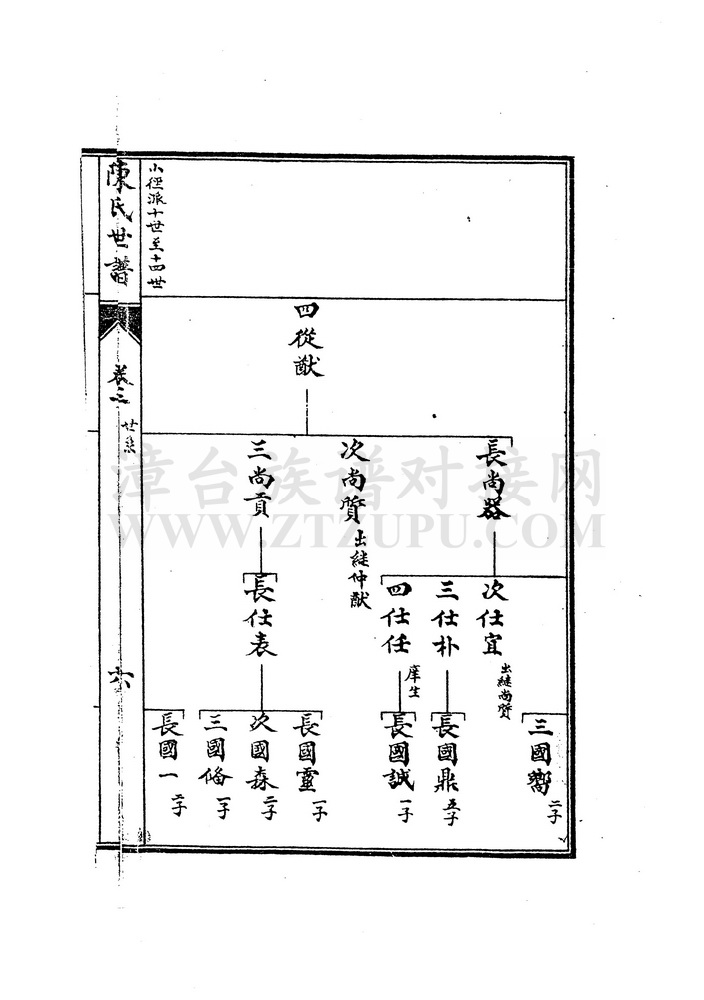 小徑派十世至十四世
四從猷
長尚器
次尚質 出繼仲猷
三尚貢
次仕宜 出繼尚質
三仕朴
四仕任 庠生
長仕表
三國嚮 二子
長國鼎 五子
長國誠 一子
長國靈 一子
次國森 二子
三國脩 一子
長國一 二子
陳氏世譜
卷三
世系
六
漳台族谱对接网
WWW.ZTZUPU.COM